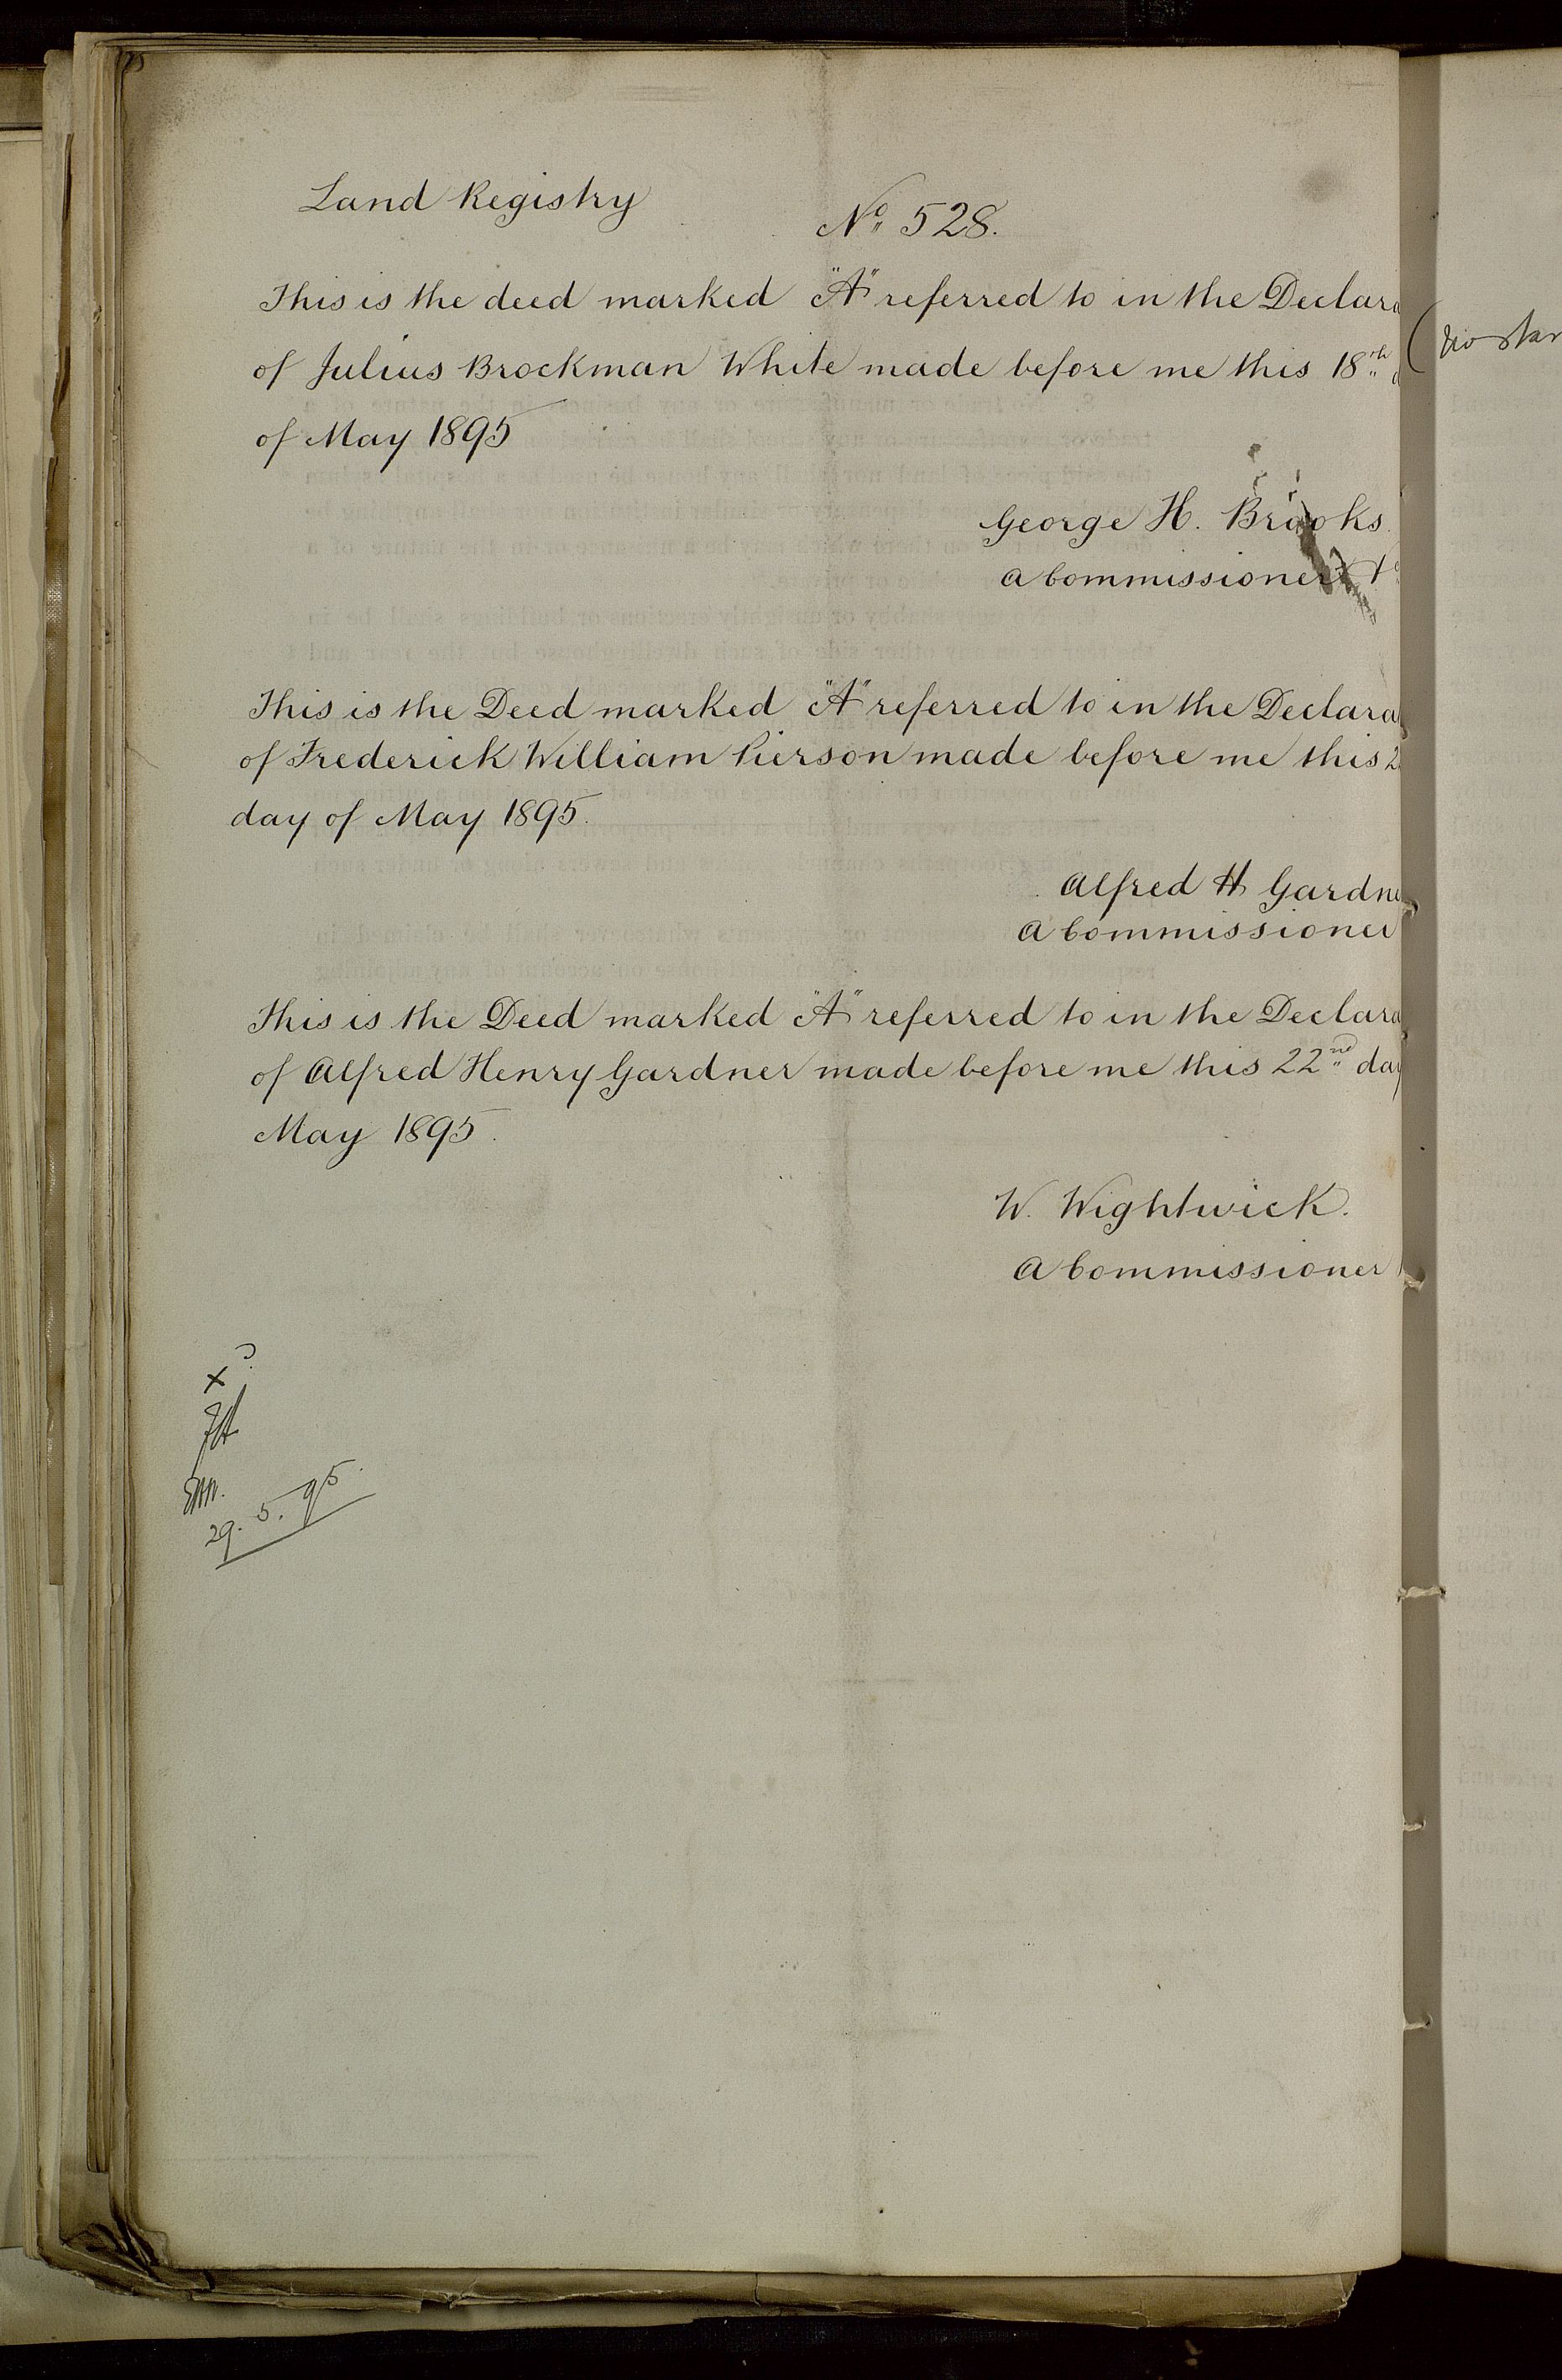 Land Registry
No 528.
This is the deed marked "A" referred to in the Declara
of Julius Brockman White made before me this 18th
of May 1895
George H. Brooks
A Commissioner &c
This is the Deed marked "A" referred to in the Declara
of Frederick William Pierson made before me this 2
day of May 1895.
Alfred H Gardne
A Commissioner
This is the Deed marked "A" referred to in the Declara
of Alfred Henry Gardner made before me this 22nd day
May 1895.
W. Wightwick.
A Commissioner
x
29. 5. 95.